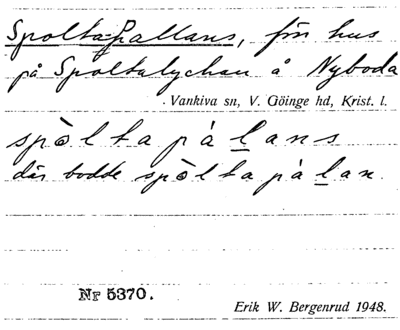 Spoltapallans, fin hus
på Spoltalyckan å Nyboda
Vankiva sn, V. Göinge hd, Krist. l.
spòlta pàlans
där bodde spòlta pàlan.
Nr 5370.
Erik W. Bergenrud 1948.